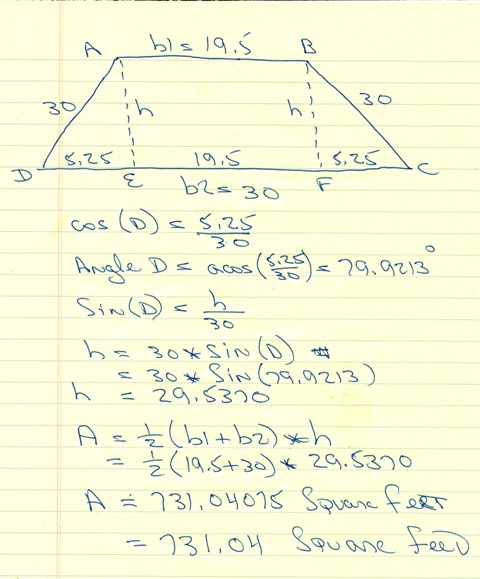 A b1 = 19.5 B
30 h h 30
D 5.25 E 19.5 F 5.25 C
b2 = 30
cos(D) = 5.25/30
Angle D = acos(5.25/30) = 79.9213°
Sin(D) = h/30
h = 30 * Sin(D)
= 30 * Sin(79.9213)
h = 29.5370
A = 1/2(b1+b2) * h
= 1/2(19.5+30) * 29.5370
A = 731.04075 Square feet
= 731.04 Square Feet